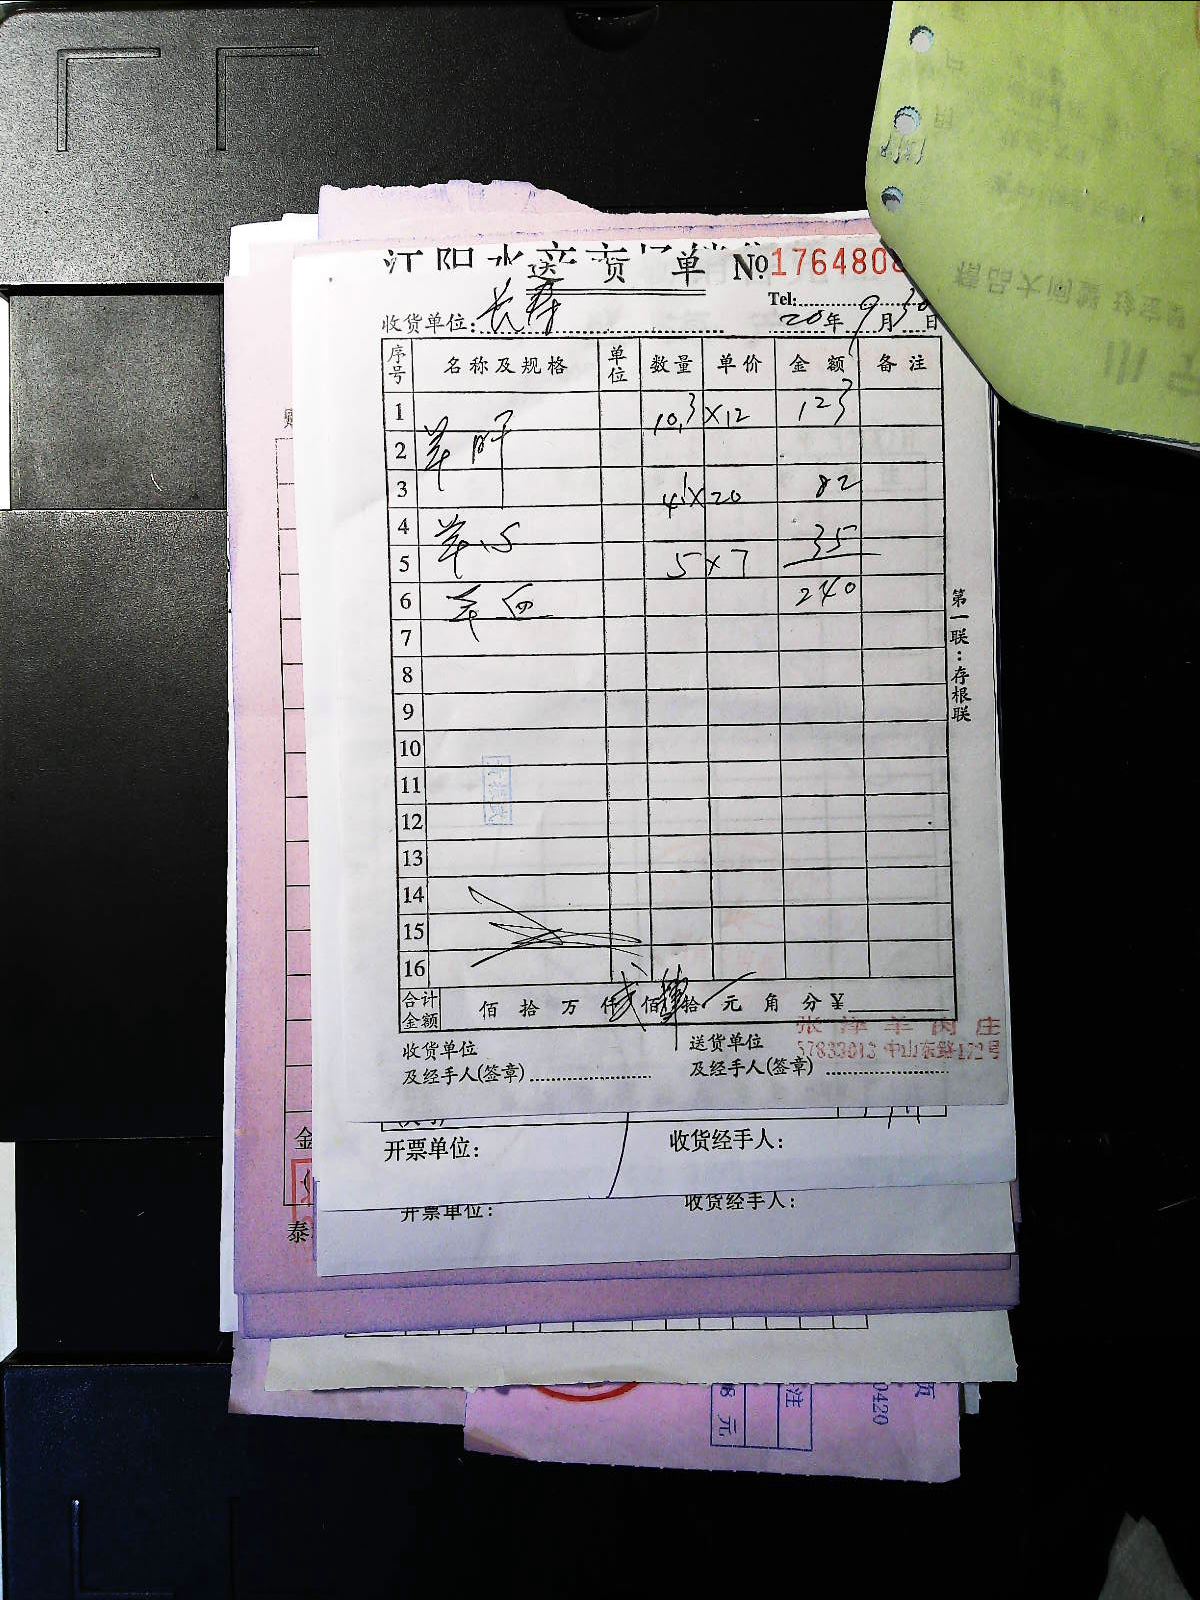 送货单 №1764808
Tel:
收货单位: 长寿 2020年9月30日
序号 名称及规格 单位 数量 单价 金额 备注
1 10.3×12 123
2 羊肝
3 4.1×20 82
4 羊心 35
5 5×7
6 羊血 240
7
8
9
10
11
12
13
14
15
16
合计金额 佰拾万仟贰佰肆拾元角分¥
第一联:存根联
收货单位 送货单位
及经手人(签章) 及经手人(签章)
张泽羊肉庄
57833013 中山东路172号
开票单位: 收货经手人:
开票单位: 收货经手人:
金
泰
注
元
页
0420